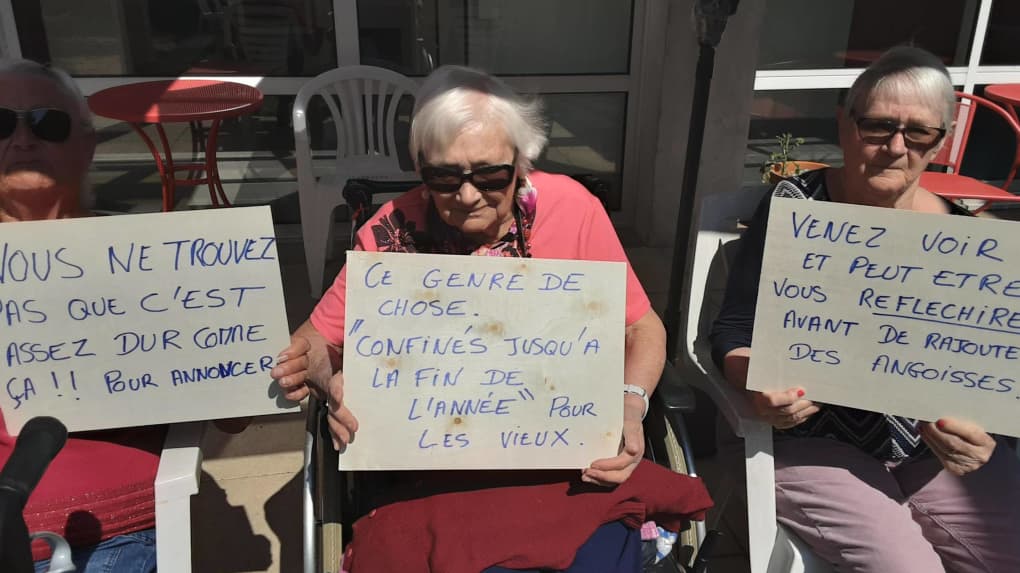 VOUS NE TROUVEZ
PAS QUE C'EST
ASSEZ DUR COMME
ÇA!! POUR ANNONCER
CE GENRE DE
CHOSE.
"CONFINÉS JUSQU'A
LA FIN DE
L'ANNÉE" POUR
LES VIEUX.
VENEZ VOIR
ET PEUT ETRE
VOUS REFLECHIRE
AVANT DE RAJOUTE
DES ANGOISSES.